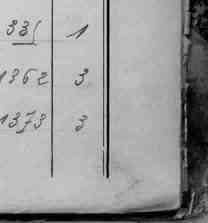 33( 1
1362 3
1373 3